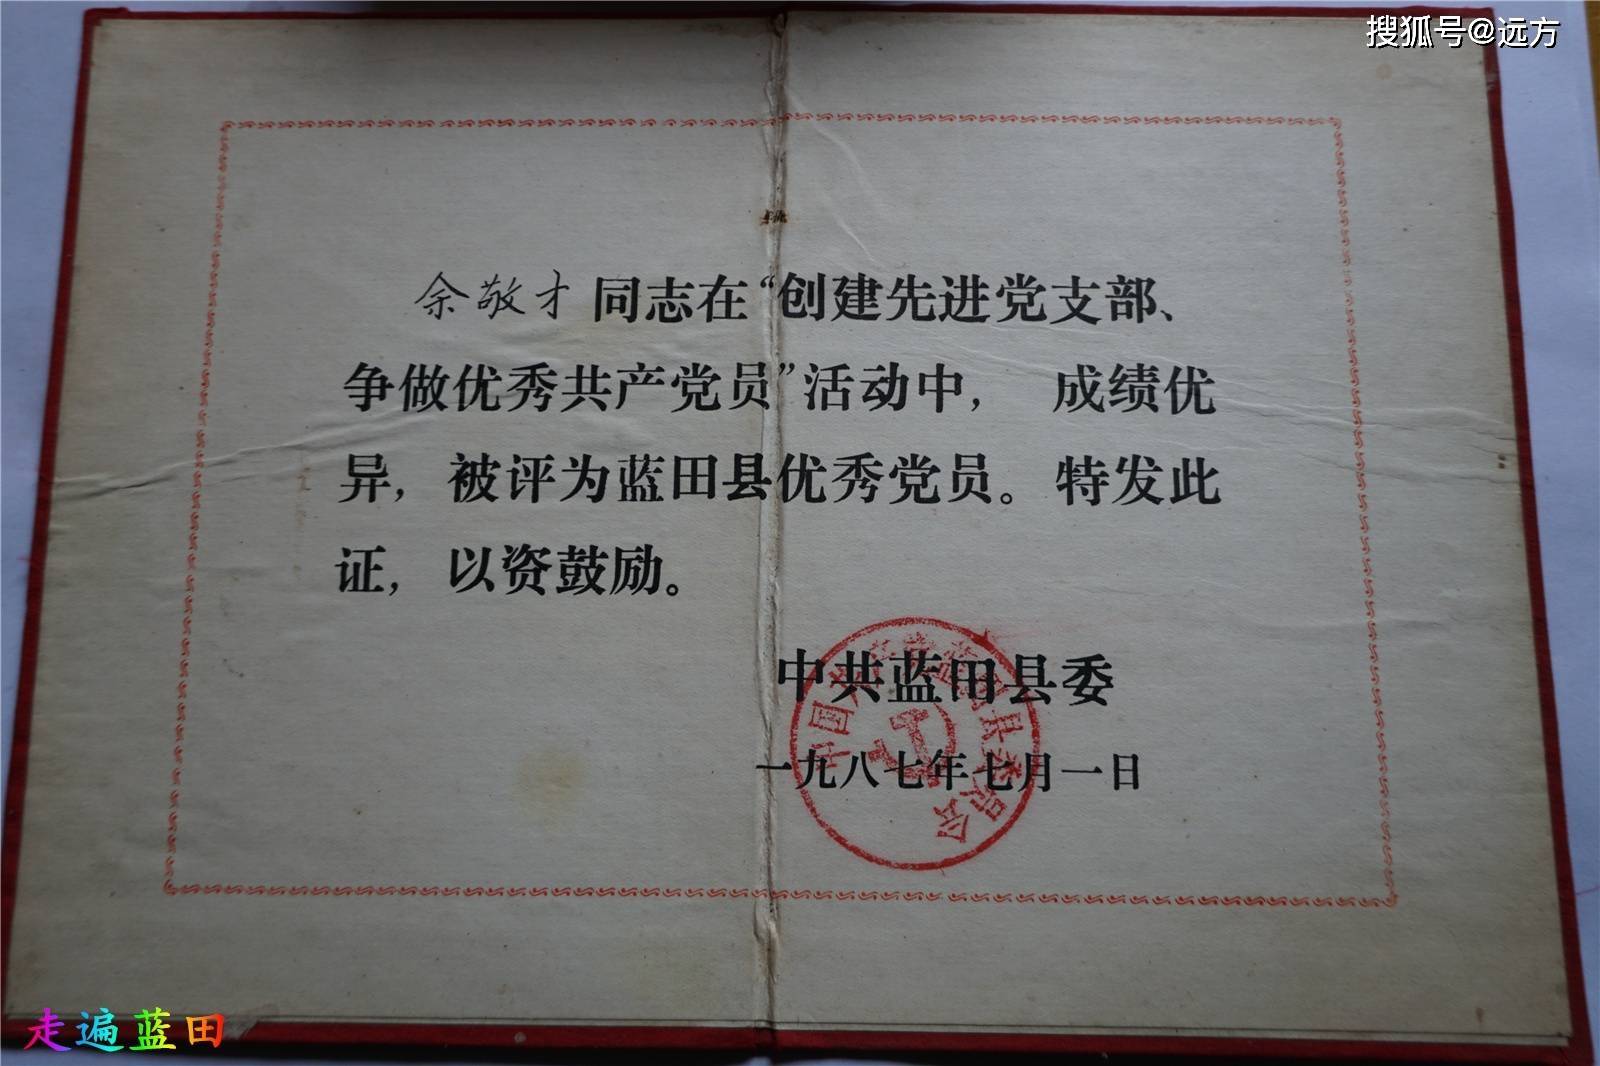 搜狐号@远方
余敬才同志在“创建先进党支部、
争做优秀共产党员”活动中， 成绩优
异，被评为蓝田县优秀党员。特发此
证，以资鼓励。
中共蓝田县委
一九八七年七月一日
中国共产党蓝田县委员会
走遍蓝田